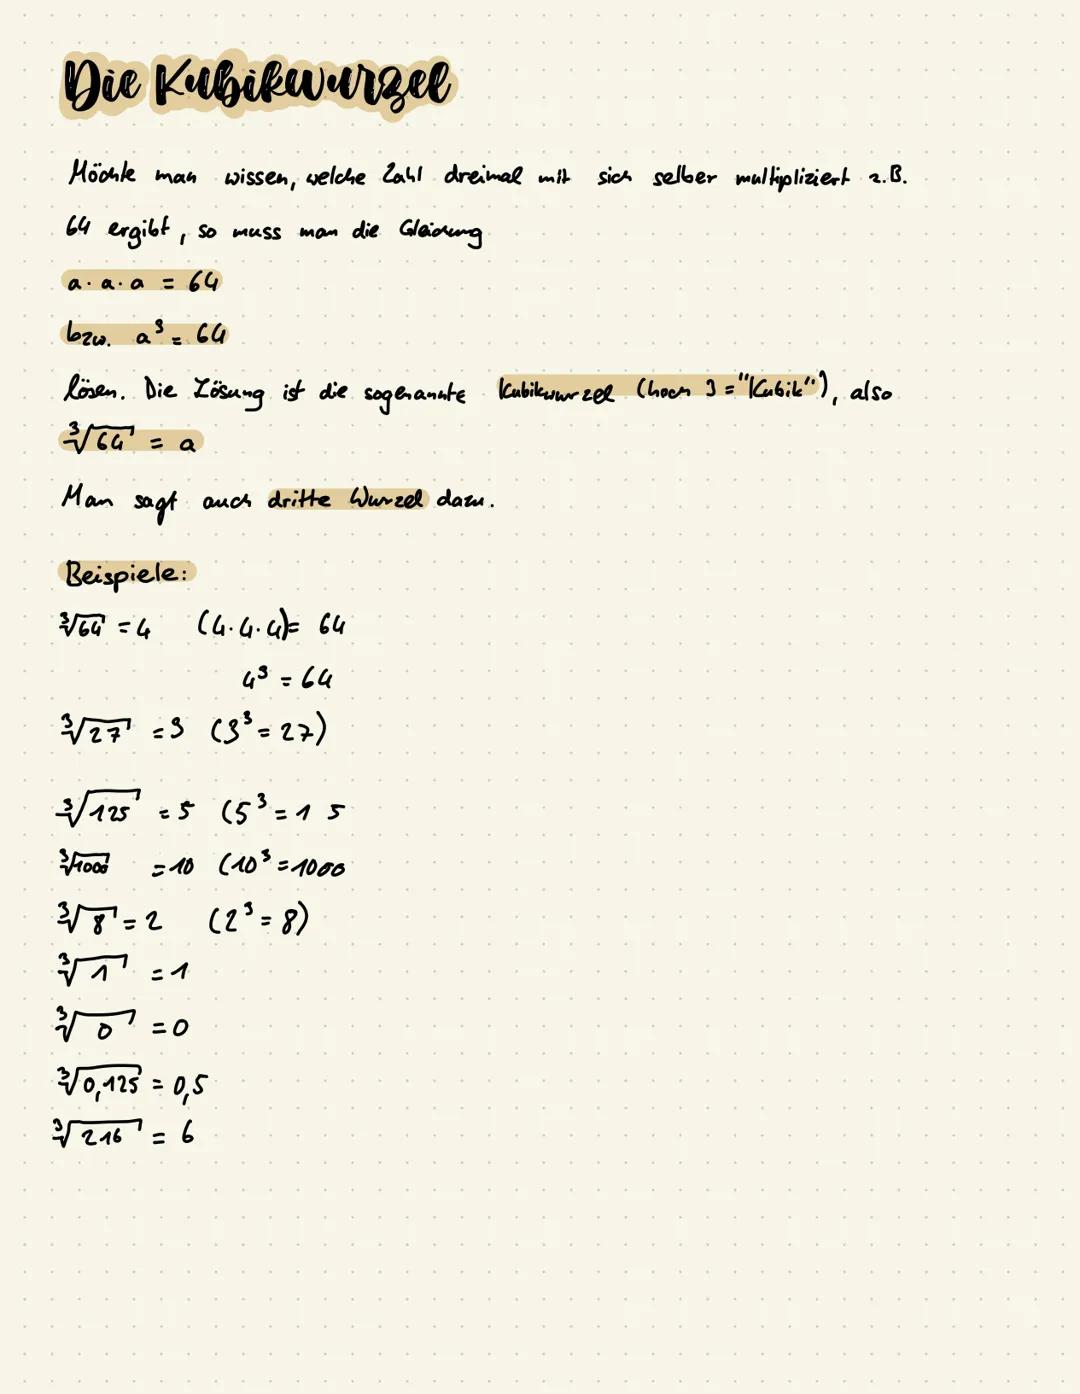 Die Kubikwurzel
Möchte man wissen, welche Zahl dreimal mit sich selber multipliziert z.B.
64 ergibt, so muss man die Gleichung
a · a · a = 64
bzw. a³ = 64
lösen. Die Lösung ist die sogenannte Kubikwurzel (hoch 3 = "Kubik"), also
³√64 = a
Man sagt auch dritte Wurzel dazu.
Beispiele:
³√64 = 4 (4·4·4)= 64
4³ = 64
³√27 = 3 (3³ = 27)
³√125 = 5 (5³ = 1 5
³√1000 = 10 (10³ = 1000
³√8 = 2 (2³ = 8)
³√1 = 1
³√0 = 0
³√0,125 = 0,5
³√216 = 6